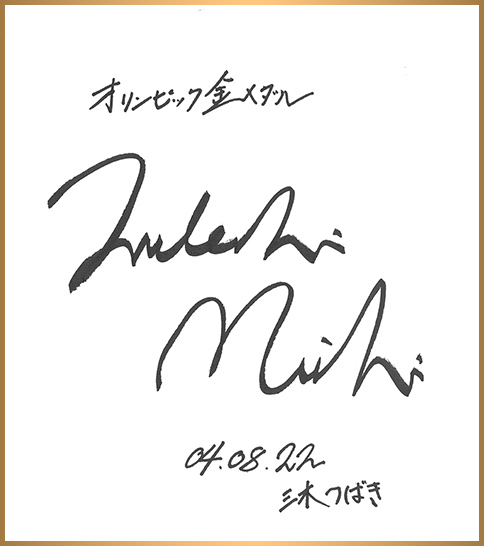 オリンピック金メダル
Tsubaki
Miki
04.08.22
三木つばき